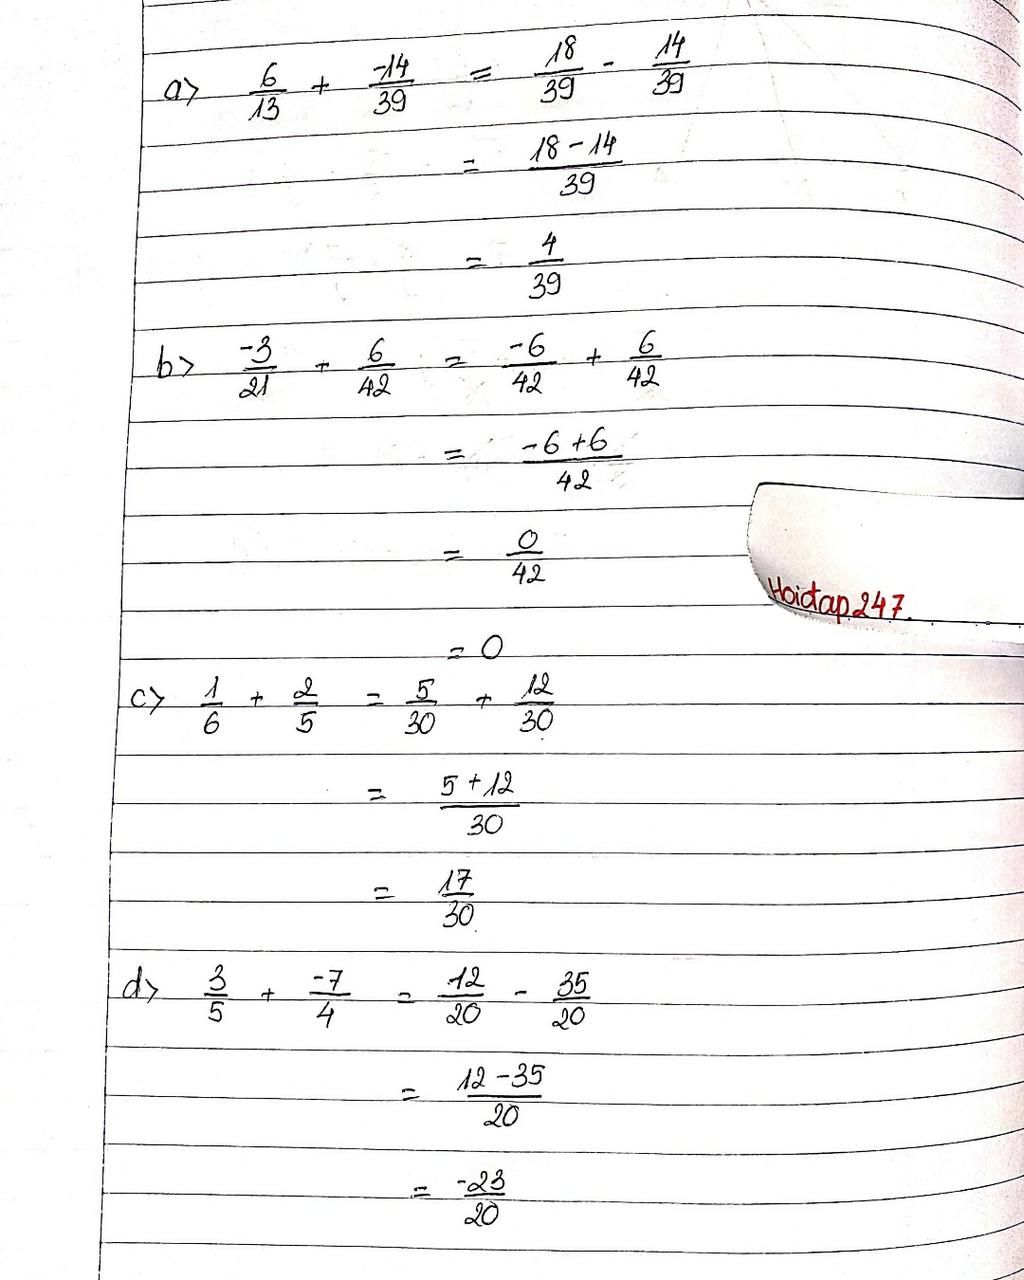 a> 6/13 + -14/39 = 18/39 - 14/39
= 18 - 14/39
= 4/39
b> -3/21 + 6/42 = -6/42 + 6/42
= -6 + 6/42
= 0/42
Hoidap247.
= 0
c> 1/6 + 2/5 = 5/30 + 12/30
= 5 + 12/30
= 17/30
d> 3/5 + -7/4 = 12/20 - 35/20
= 12 - 35/20
= -23/20